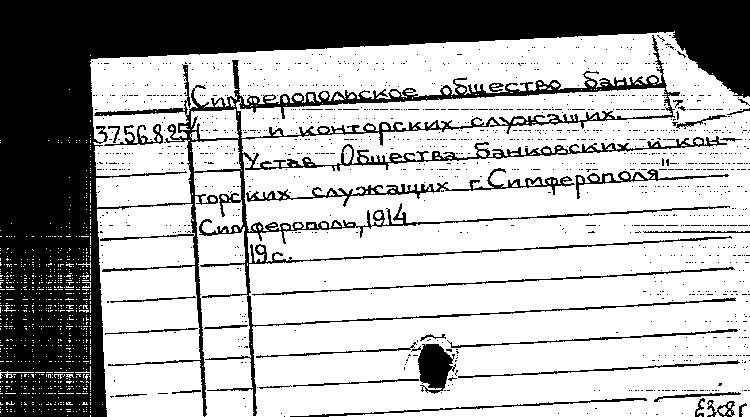 Симферопольское общество банко
37.56.8.254 и конторских служащих.
Устав „Общества банковских и кон-
торских служащих г. Симферополя"
Симферополь, 1914.
19 с.